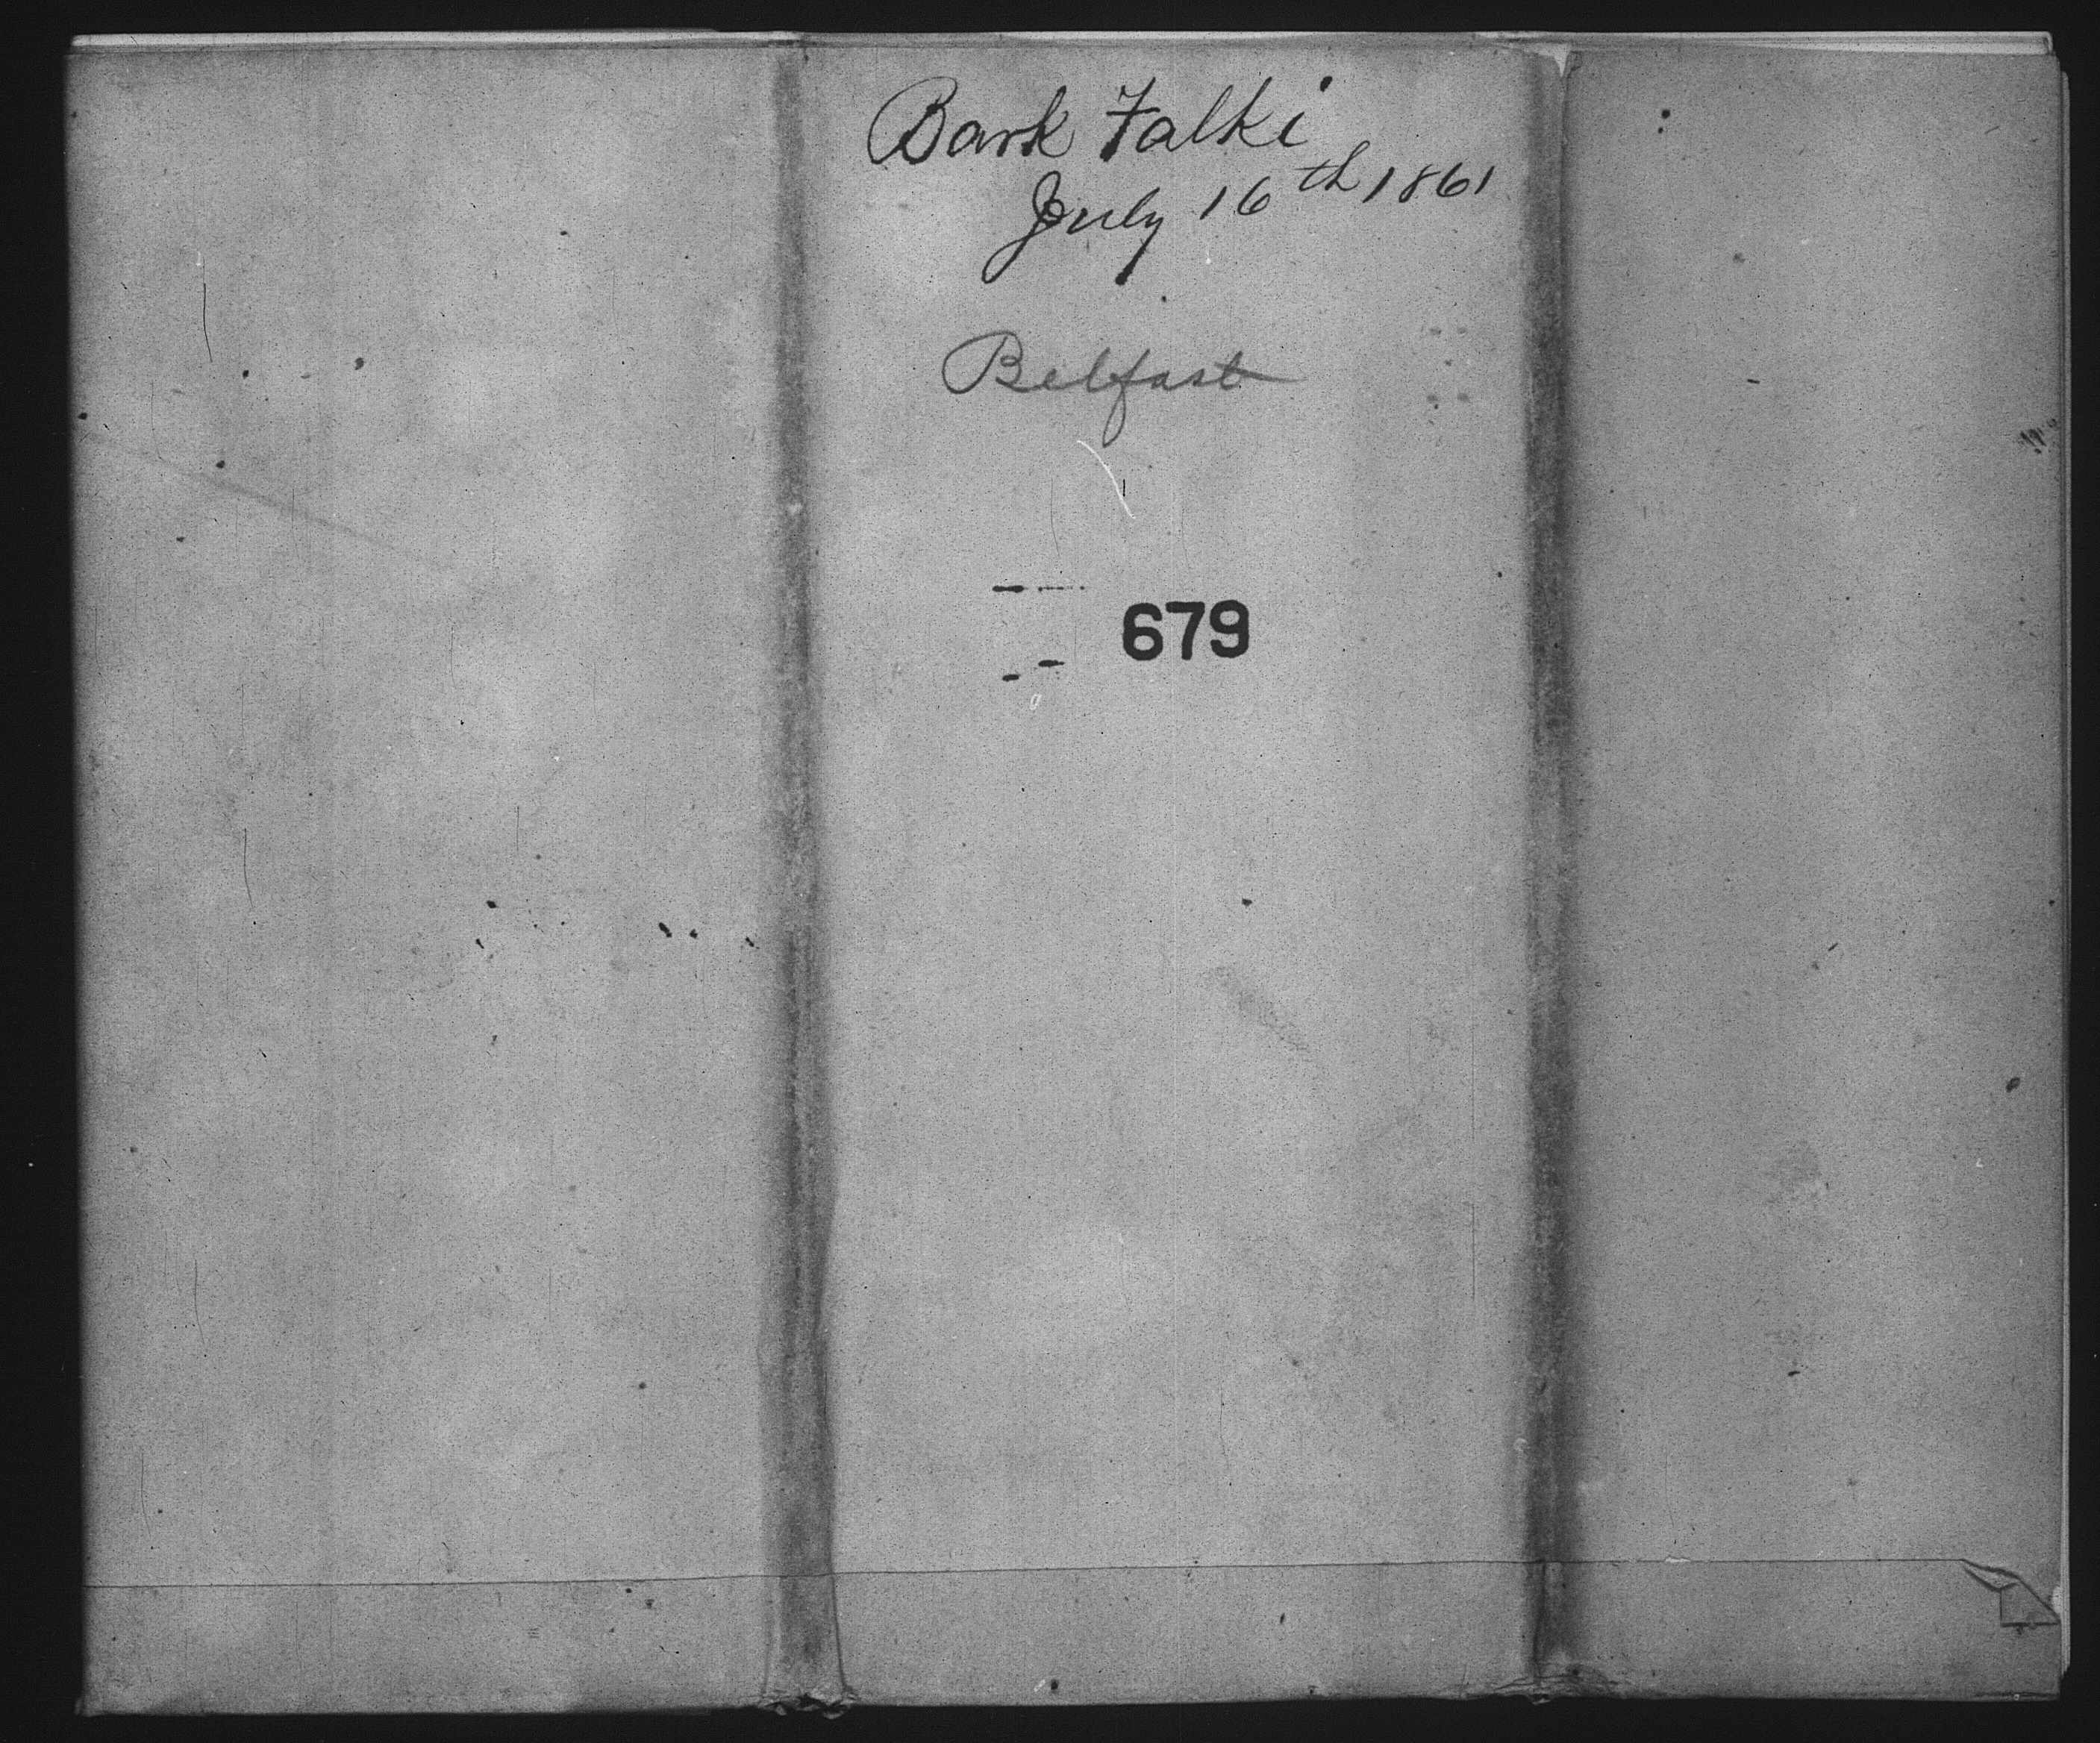 Bark Falki
July 16th 1861
Belfast
679